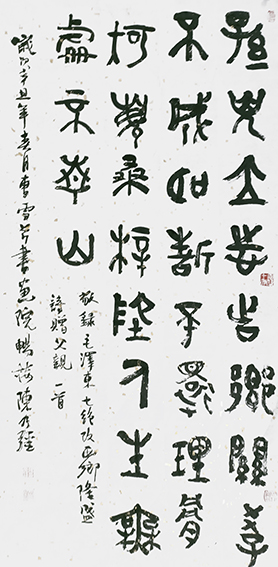 孩兒立志出鄉關學
不成名誓不還埋骨
何須桑梓地人生無
處不青山
敬録毛澤東七絶改西鄉隆盛
詩贈父親一首
歲次辛丑年春月曹雪芹書畫院陳乃